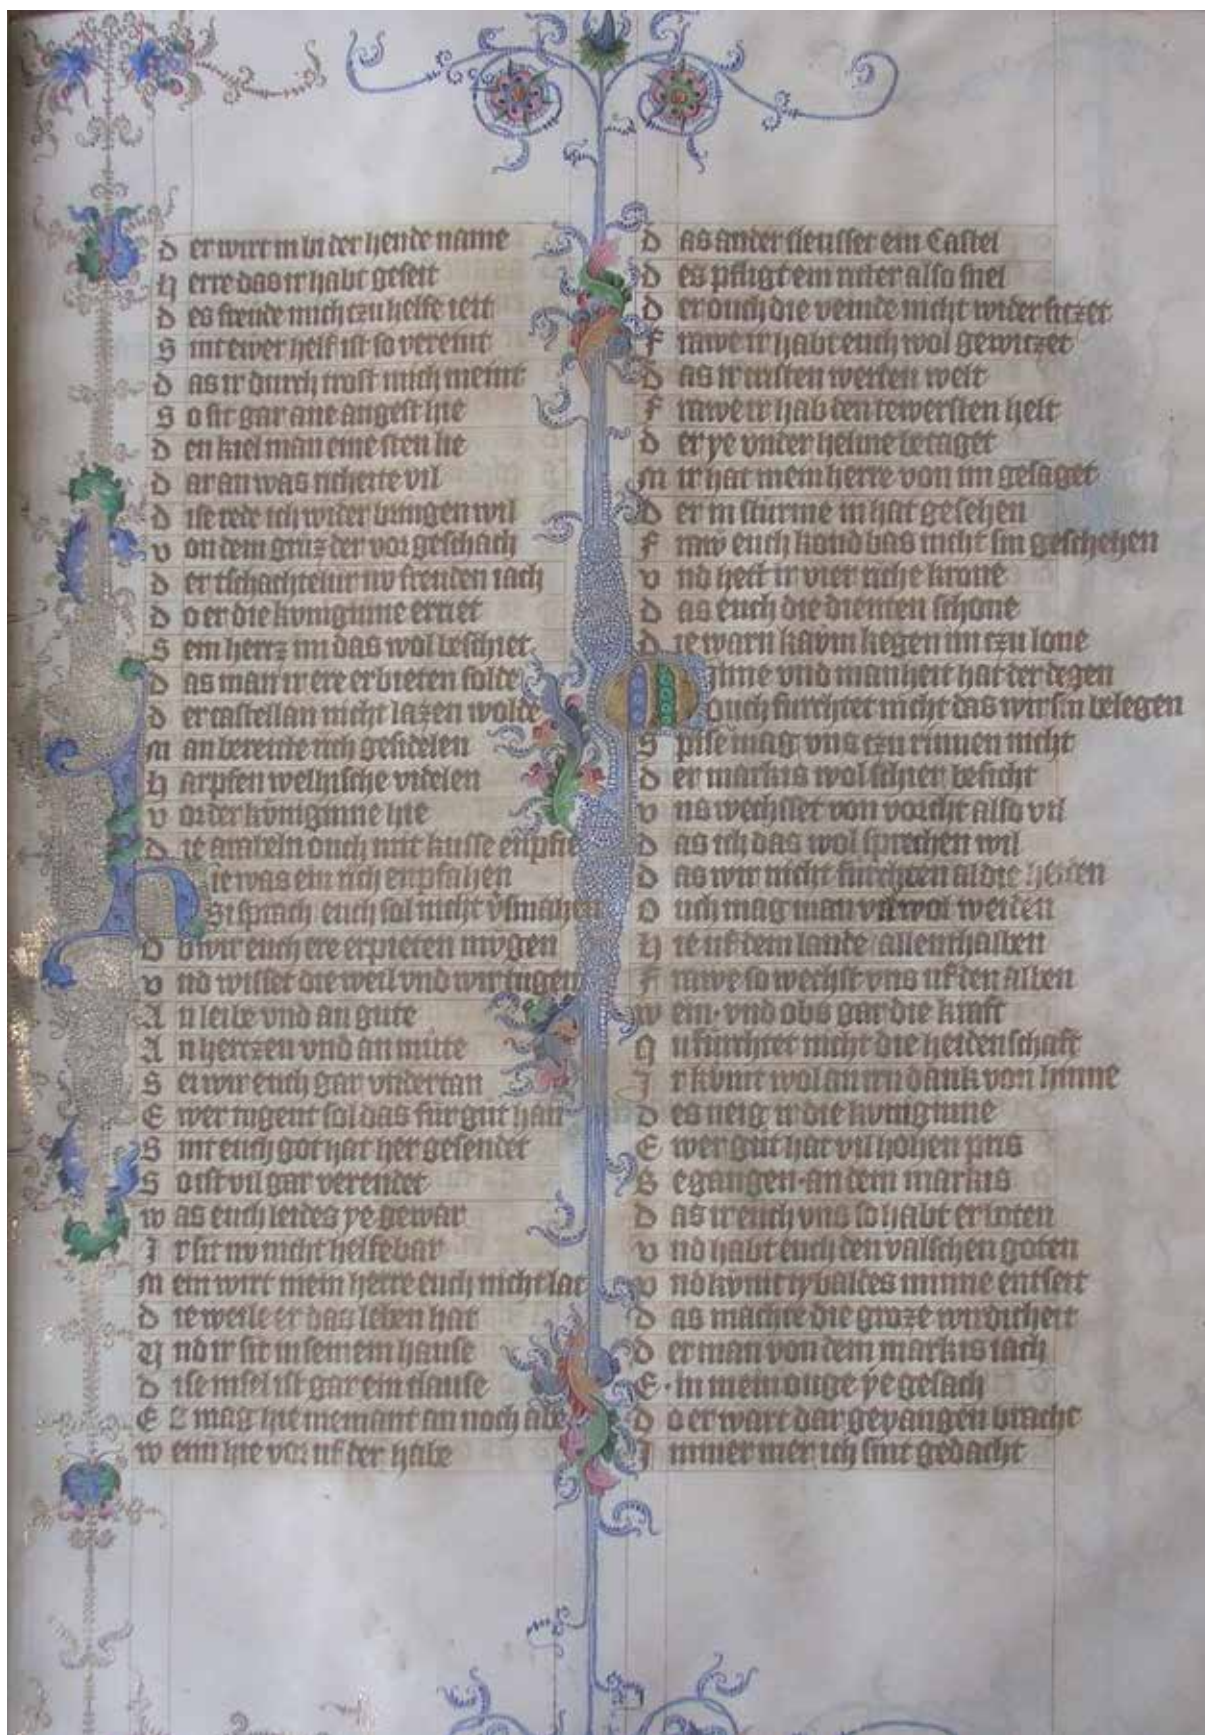 D er wirt in bi der hende name
H erre das ir habt geseit
D es freude mich czu helfe ieit
S int ewer helf ist so vereint
D as ir durch trost mich meint
S o sit gar ane angest hie
D en kiel man eine sten lie
D ar an was richeite vil
D ise rede ich wider bringen wil
V on dem gruz der vor geschach
D er tschachtelur nv freuden iach
D o er die kvniginne erriet
S ein herz im das wol beschiet
D as man ir ere erbieten solde
D er castellan nicht lazen wolde
M an bereitte rich gesidelen
H arpfen welhische videlen
V or der kvniginne hie
D ie ambeln ouch mit kusse enpfie
H ie was ein rich enpfahen
Si sprach euch sol nicht v̓smahen
D o wir euch ere erpieten mvgen
V nd wisset die weil vnd wir tugen
A n leibe vnd an gute
A n herczen vnd an mute
S ei wir euch gar vndertan
E wer tugent sol das fur gut han
S int euch got hat her gesendet
S o ist vil gar verendet
W as euch leides ye gewar
I r sit nv nicht helfebar
M ein wirt mein herre euch nicht lat
D ie weile er das leben hat
V nd ir sit in seinem hause
D ise insel ist gar ein clause
E z mag hie niemant an noch abe
W enn hie vor uf der habe
D as ander sleusset ein Castel
D es pfligt ein ritter also snel
D er ouch die veinde nicht wider siczet
F rawe ir habt euch wol gewiczet
D as ir cristen werden welt
F rawe ir hab den tewersten helt
D er ye vnder helme betaget
M ir hat mein herre von im gesaget
D er in sturme in hat gesehen
F raw euch kond bas nicht sin geschehen
V nd hett ir vier riche krone
D as euch die dienten schone
D ie warn kavm kegen im czu lone
M inne vnd manheit hat der degen
ouch furchtet nicht das wir sin belegen
S pise mag vns czu rinnen nicht
D er markis wol schier besicht
V ns wechsset von vorcht also vil
D as ich das wol sprechen wil
D as wir nicht furchten al die heiden
O uch mag man vil wol weiden
H ie uf dem lande allenthalben
F rawe so wechst vns uf den alben
W ein · vnd obs gar die kraft
N u furchtet nicht die heidenschaft
I r kvmt wol an irn dank von hinne
D es neig ir die kvniginne
E wer gut hat vil hohen pris
B egangen · an dem markis
D as ir euch vns so habt erboten
V nd habt euch den valschen goten
V nd kvnic tybaldes minne entseit
D as machte die groze wirdicheit
D er man von dem markis iach
E · in mein ouge ye gesach
D o er wart dar gevangen bracht
I mmer mer ich sint gedacht